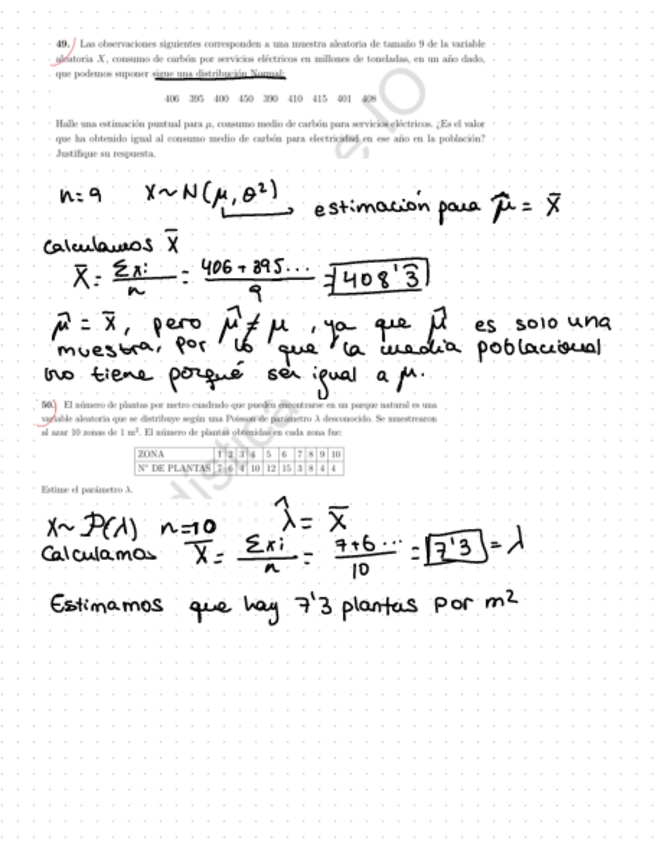 49. Las observaciones siguientes corresponden a una muestra aleatoria de tamaño 9 de la variable
aleatoria X, consumo de carbón por servicios eléctricos en millones de toneladas, en un año dado,
que podemos suponer sigue una distribución Normal:
406 395 400 450 390 410 415 401 408
Halle una estimación puntual para μ, consumo medio de carbón para servicios eléctricos. ¿Es el valor
que ha obtenido igual al consumo medio de carbón para electricidad en ese año en la población?
Justifique su respuesta.
n=9 X~N(μ, θ²) estimación para μ̂ = X̄
Calculamos X̄
X̄ = Σxi/n = 406+395.../9 = 408'3̂
μ̂ = X̄, pero μ̂ ≠ μ, ya que μ̂ es solo una
muestra, por lo que la media poblacional
no tiene porqué ser igual a μ.
50. El número de plantas por metro cuadrado que pueden encontrarse en un parque natural es una
variable aleatoria que se distribuye según una Poisson de parámetro λ desconocido. Se muestrearon
al azar 10 zonas de 1 m². El número de plantas obtenidas en cada zona fue:
ZONA 1 2 3 4 5 6 7 8 9 10
Nº DE PLANTAS 7 6 4 10 12 15 3 8 4 4
Estime el parámetro λ.
X~P(λ) n=10 λ̂ = X̄
Calculamos X̄ = Σxi/n = 7+6.../10 = 7'3 = λ
Estimamos que hay 7'3 plantas por m²